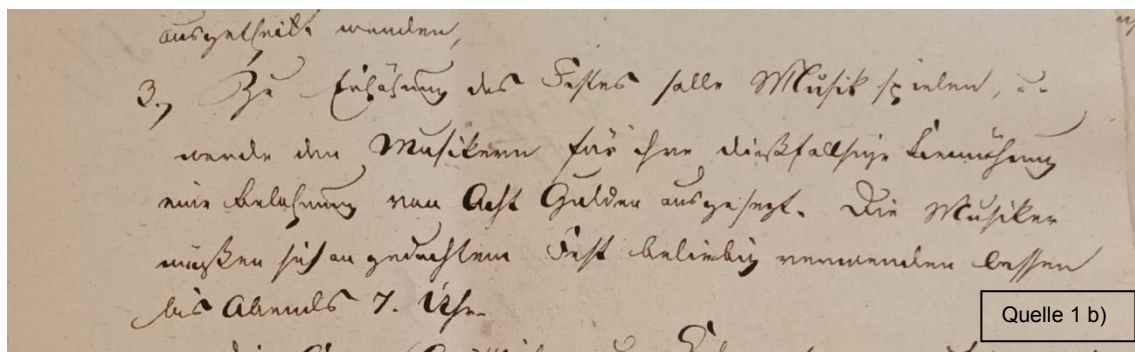 ausgetheilt werden,
3., Zu Erhöhung des Festes solle Musik spielen, u.
werde den Musikern für ihre dießfallsige Bemühung
eine Belohnung von Acht Gulden ausgesezt. Die Musiker
müßen sich an gedachtem Fest beliebig verwenden lassen
bis Abends 7. Uhr.
Quelle 1 b)